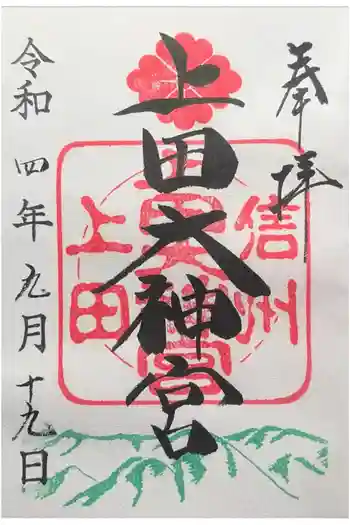 奉拝
上田大神宮
信州
上田
令和四年九月十九日